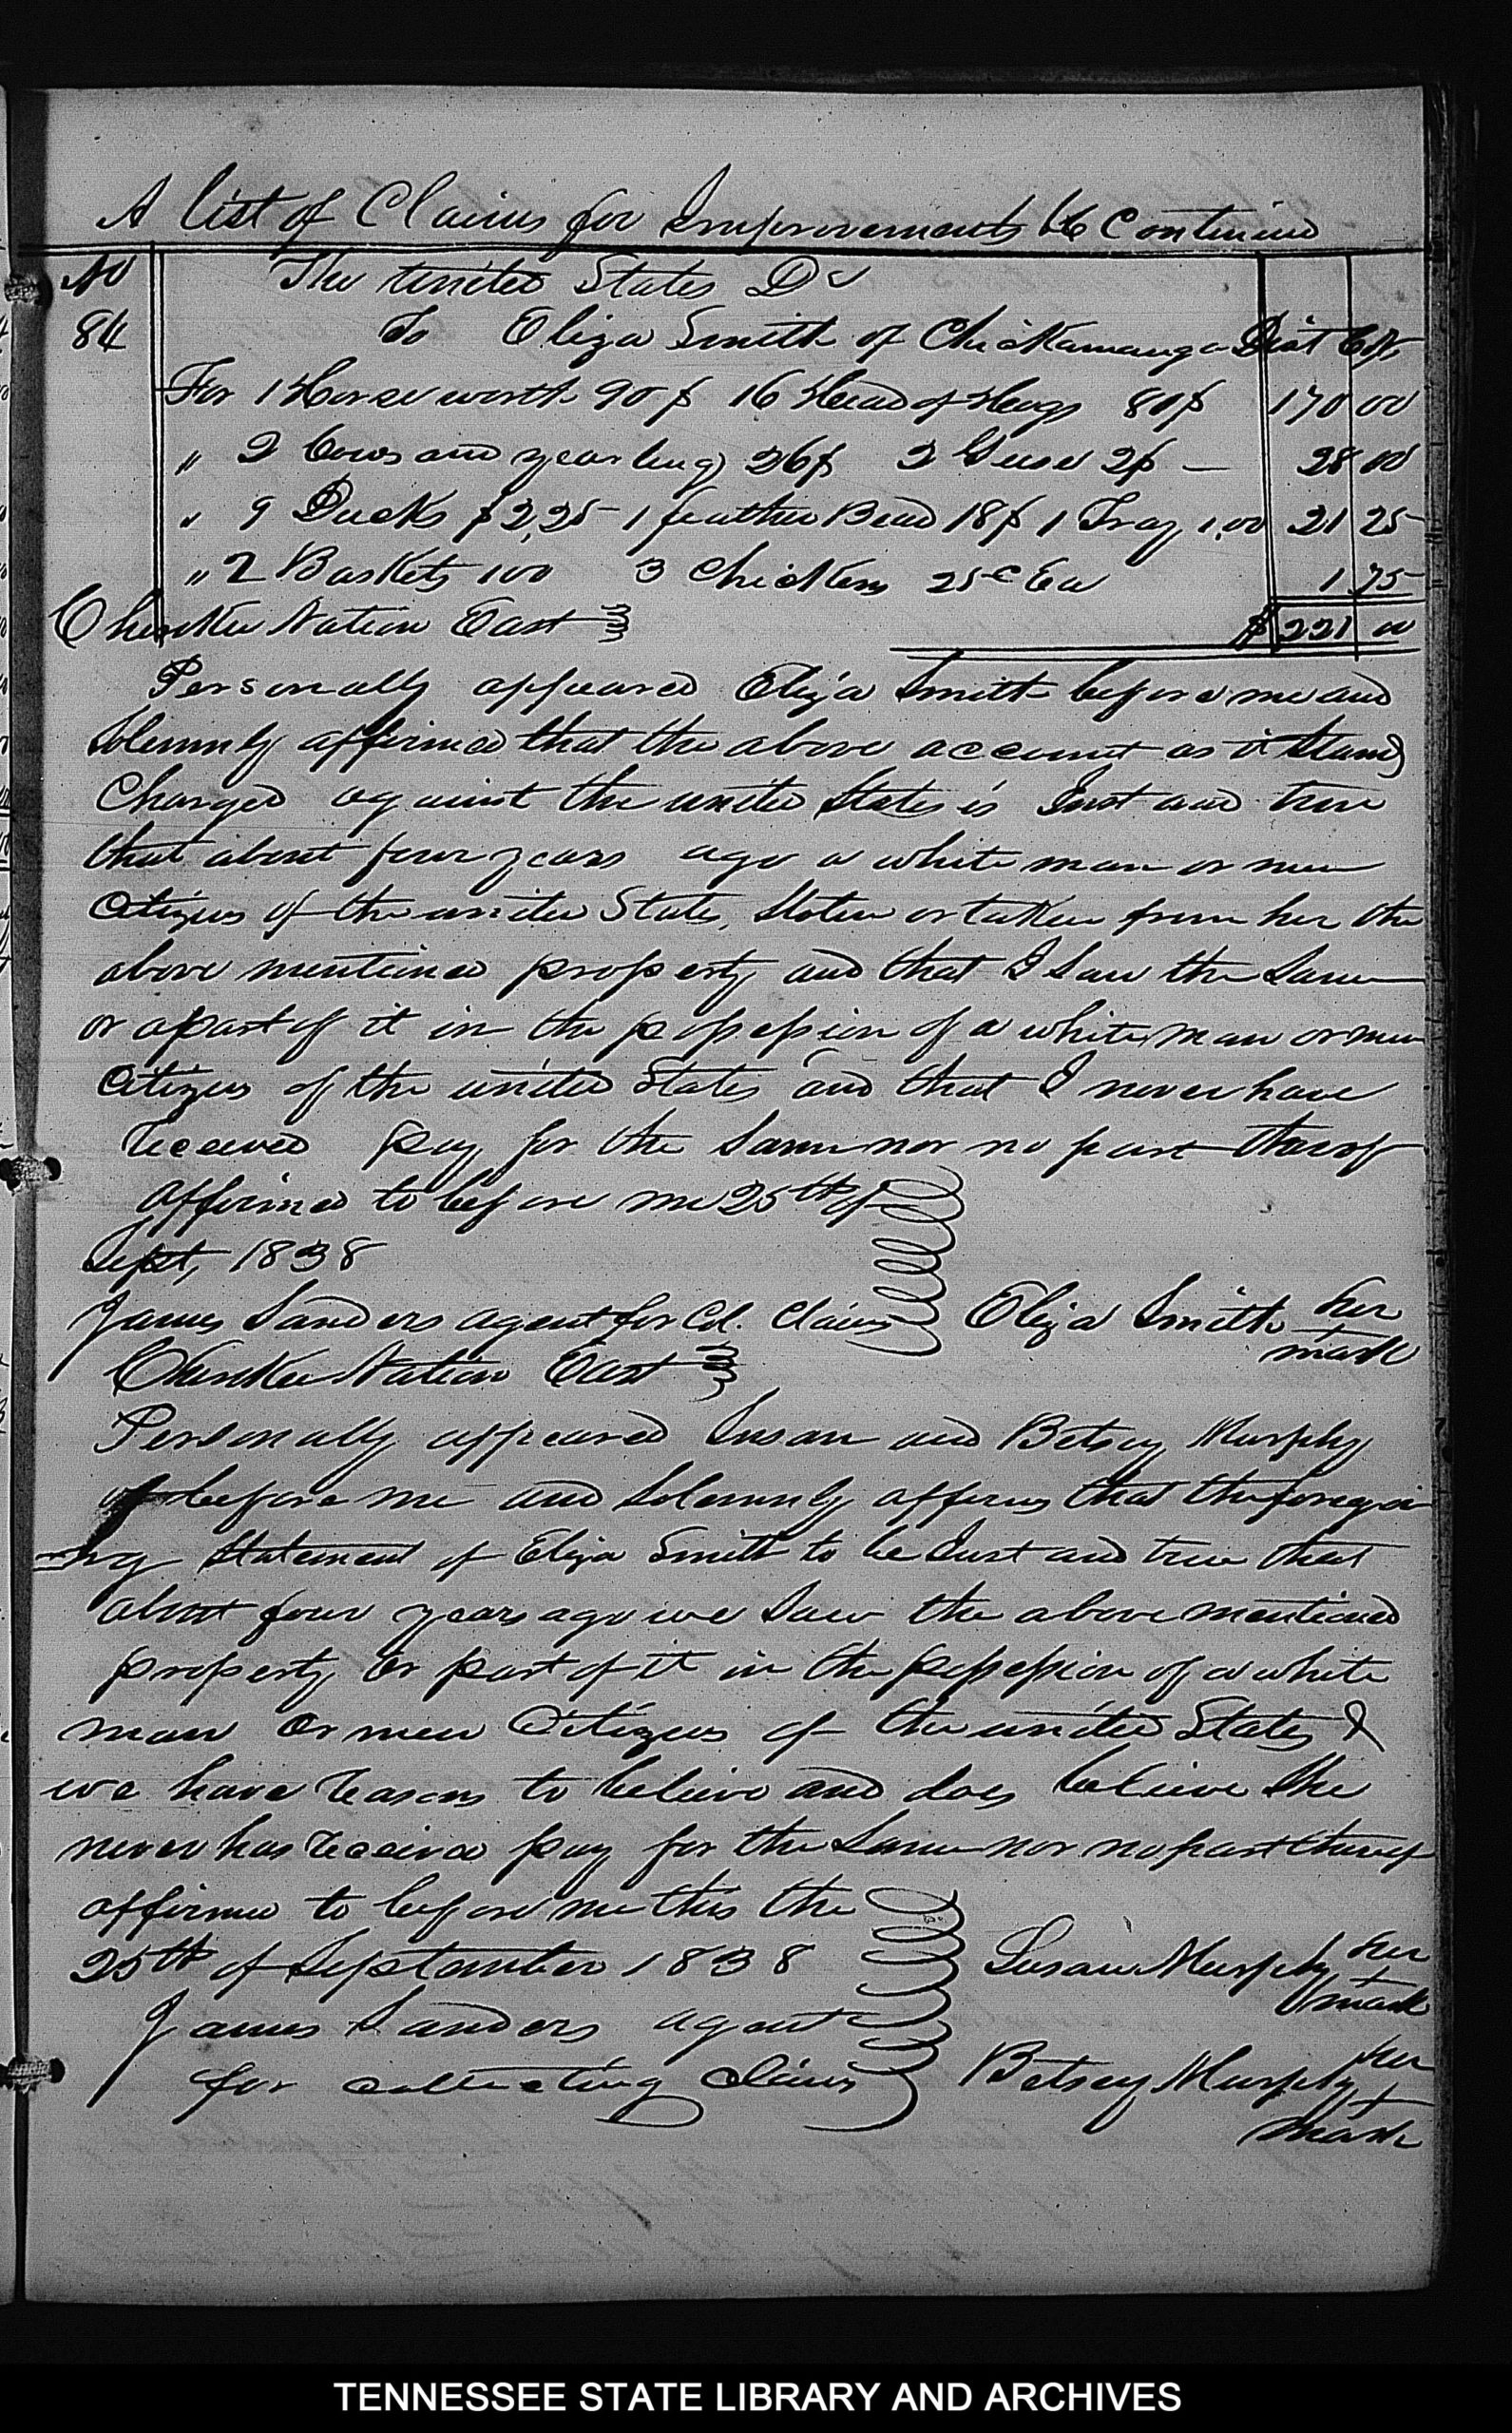 A list of Claims for Improvements &c Continued
No The United States Dr
84 To Eliza Smith of Chickamauga Dist C.N,
For 1 Horse worth 90 $ 16 Head of Hogs 80 $ 170 00
" 2 Cows and yearling 26 $ 2 Geese 2 $ — 28 00
" 9 Ducks $ 2,25 1 feather Bead 18 $ 1 Tray 1,00 21 25
" 2 Baskets 100 3 Chickens 25 c Ea 1 75
Cherokee Nation East $ 221 00
Personally appeared Eliza Smith before me and
Solemnly affirmed that the above account as it stands
Charged against the united States is Just and true
that about four years ago a white man or men
Citizens of the united States, Stolen or taken from her the
above mentioned property and that I Saw the Same
or a part of it in the possession of a white man or men
Citizens of the united States and that I never have
received pay for the Same nor no part thereof
affirmed to before me 25th of
Sept, 1838
James Sanders agent for Col. Claims Eliza Smith her
mark
Cherokee Nation East
Personally appeared Susan and Betsey Murphy
before me and Solemnly affirms that the foregoi
ng Statement of Eliza Smith to be Just and true that
about four years ago we Saw the above mentioned
property or part of it in the possession of a white
man or men Citizens of the united States &
we have reasons to believe and does believe She
never has received pay for the Same nor no part thereof
affirmed to before me this the
25th of September 1838 Susan Murphy her
mark
James Sanders agent
for collecting Claims Betsey Murphy her
mark
TENNESSEE STATE LIBRARY AND ARCHIVES